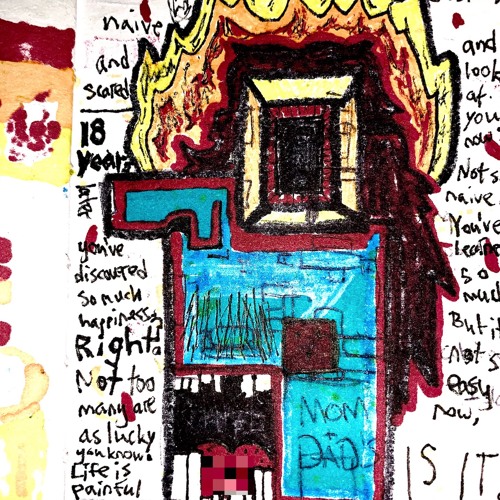 naive
and
scared
18
years
you've
discovered
so much
happiness,
Right?
Not too
many are
as lucky
you know.
Life is
painful
MOM
+
DAD'S
and
look
at
you
now
Not so
naive
You've
learned
so
much
But it
Not s
easy
now,
IS IT